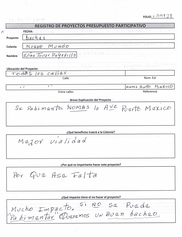 FOLIO:
REGISTRO DE PROYECTOS PRESUPUESTO PARTICIPATIVO
FECHA:
Proyecto Baches
Colonia Nuevo Mundo
Nombre
Ubicación del Proyecto:
Todas las calles
Calle Núm. Ext
Puerto Mexico
Entre calles Referencia
Breve Explicación del Proyecto
Se Pabimento NOMAS la Ave Puerto Mexico
¿Qué beneficios traerá a la Colonia?
Major vialidad
¿Por qué es importante hacer este proyecto?
Por Que Asa Falta
¿Qué impacto tiene el no hacer el proyecto?
Mucho Impacto. Si NO se Puede
Pabimentar Queremos un Buen bacheo.